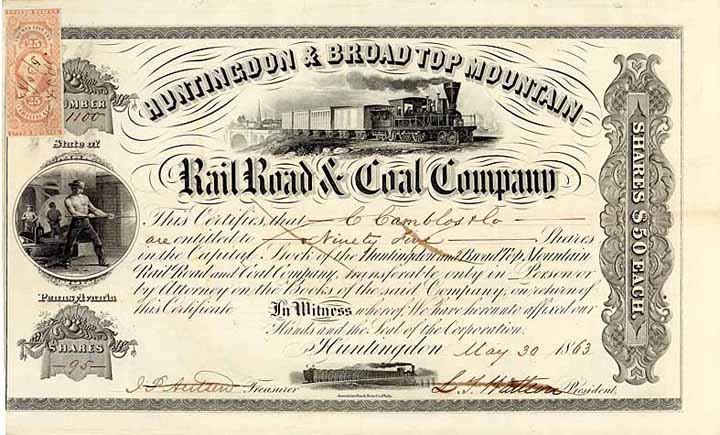 25 25
25 25
NUMBER
1100
HUNTINGDON & BROAD TOP MOUNTAIN
State of
Rail Road & Coal Company
This Certifies that C Camblos & Co
are entitled to Ninety five Shares
in the Capital Stock of the Huntingdon and Broad Top Mountain
Rail Road and Coal Company, transferable only in Person or
by Attorney on the Books of the said Company, on return of
this Certificate In Witness whereof, We have hereunto affixed our
Hands and the Seal of the Corporation.
Pennsylvania
SHARES
95
Huntingdon May 30 1863
Treasurer President.
American Bank Note Co. Phila.
SHARES $50 EACH